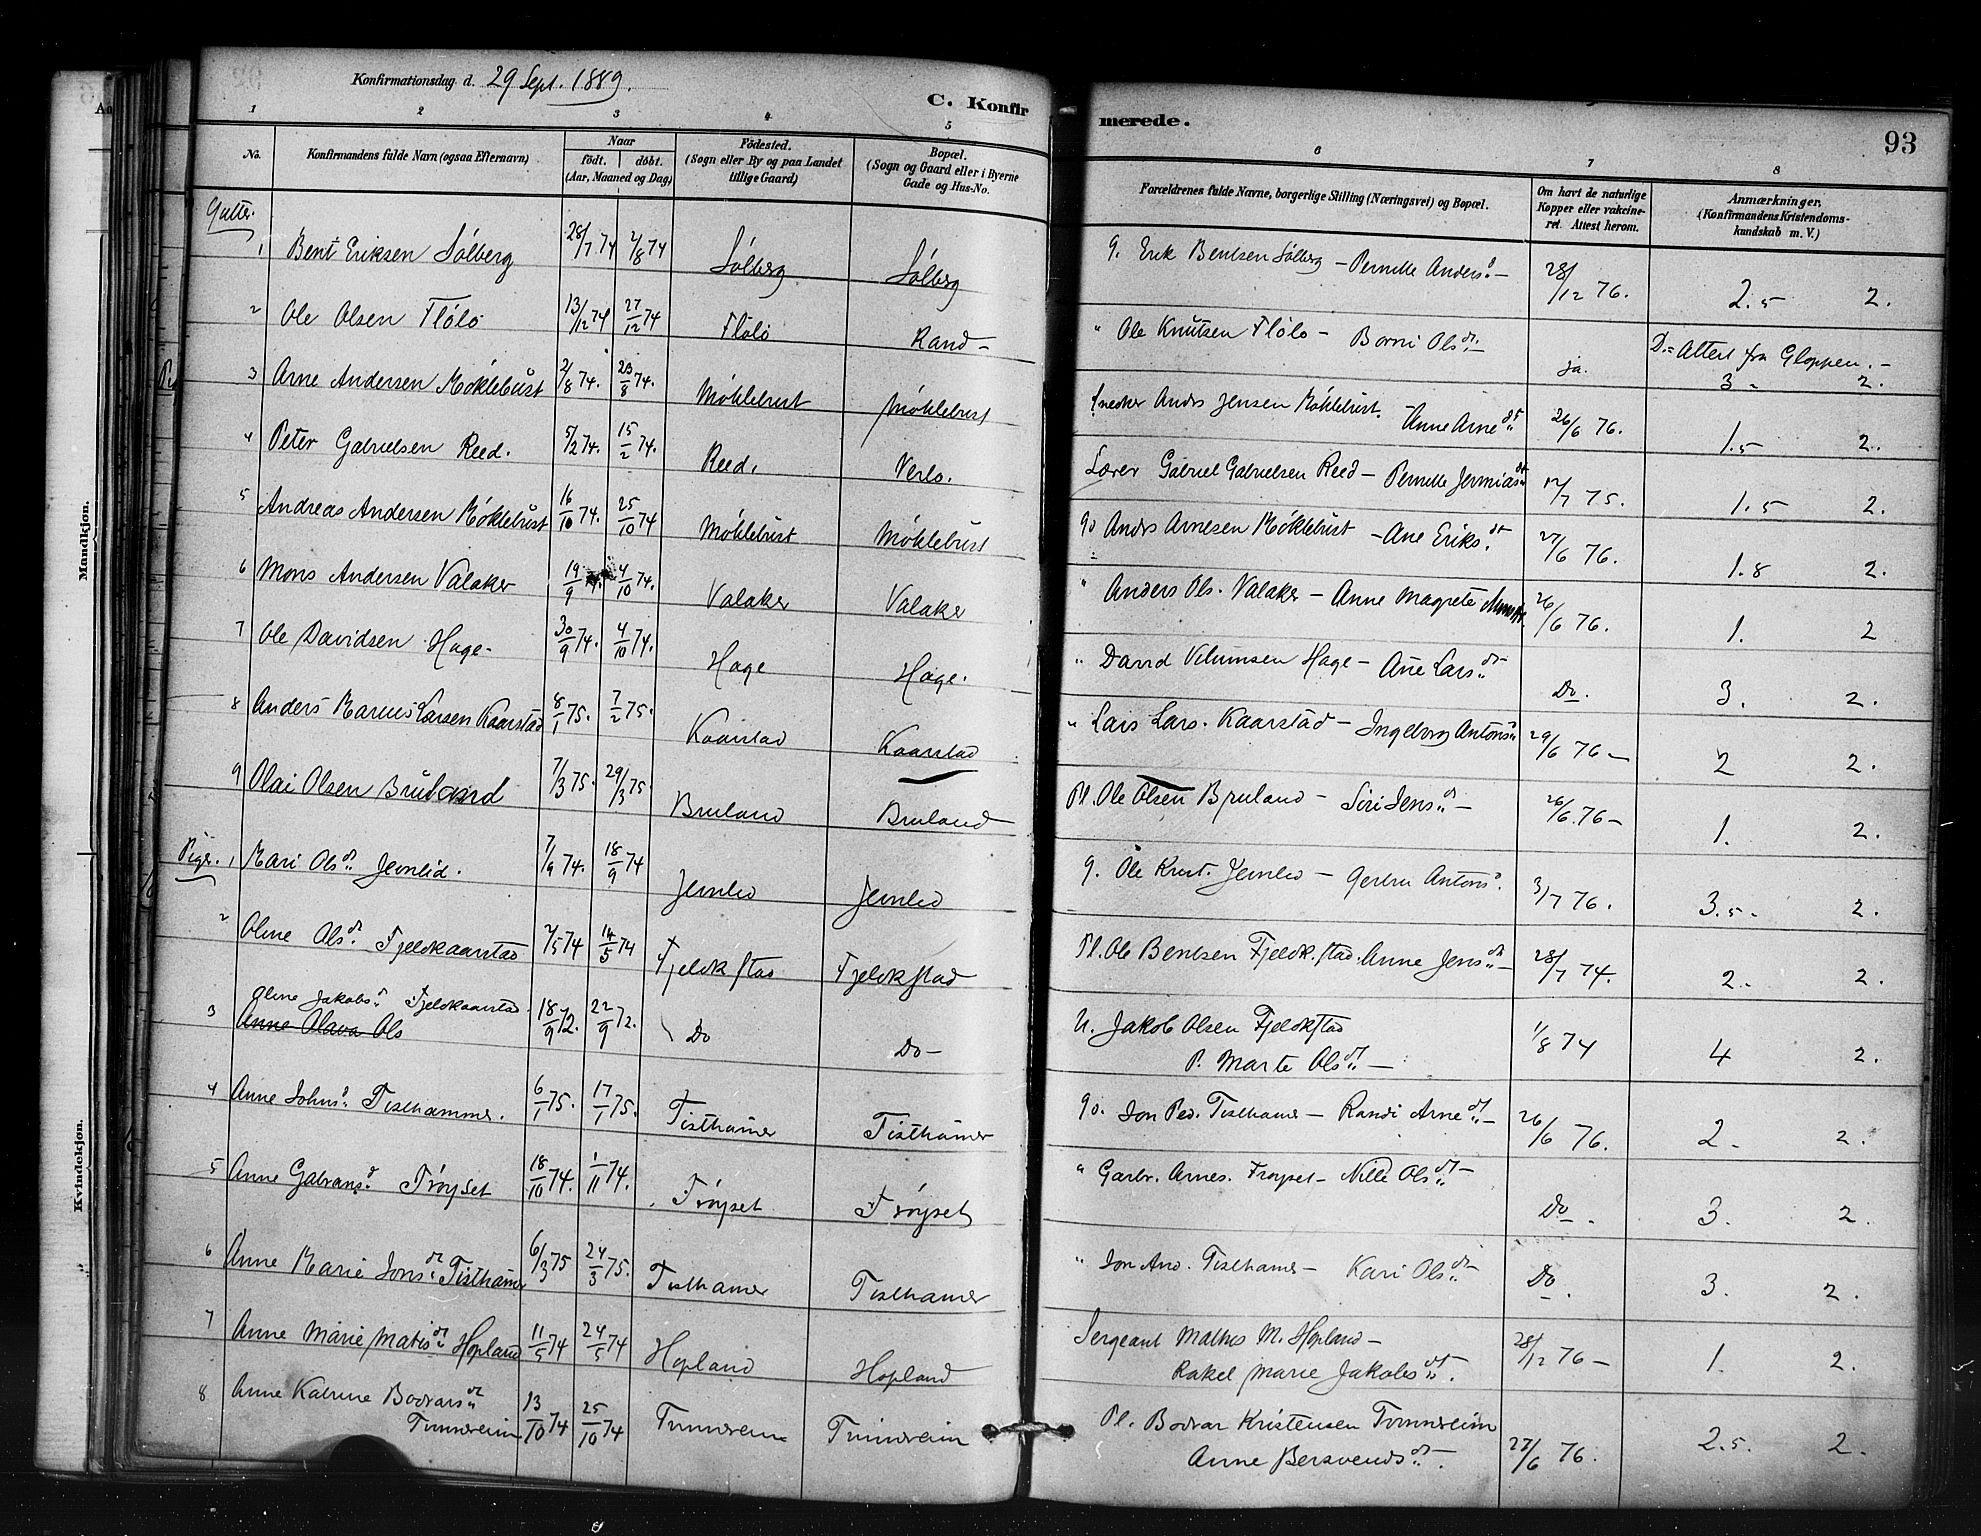 Konfirmationsdag d. 29 Sept. 1889.
C. Konfirmerede.
93
1 2 3 4 5 6 7 8
No.
Konfirmandens fulde Navn (ogsaa Efternavn)
Naar
födt. döbt.
(Aar, Maaned og Dag)
Födested.
(Sogn eller By og paa Landet
tillige Gaard)
Bopæl.
(Sogn og Gaard eller i Byerne
Gade og Hus-No.
Forældrenes fulde Navne, borgerlige Stilling (Næringsvei) og Bopæl.
Om havt de naturlige
Kopper eller vakcine-
ret. Attest herom.
Anmærkninger,
(Konfirmandens Kristendoms-
kundskab m. V.)
Mandkjøn.
Kvindekjøn.
Gutter.
1 Bent Eriksen Sólberg 28/7 74 2/8 74 Sólberg Sólberg G. Erik Bentsen Sólberg - Pernille Andersd - 28/12 76. 2.5 2.
2 Ole Olsen Flólo 13/12 74 27/12 74 Flólo Rand - " Ole Knutsen Flólo - Borni Olsdt. - ja. D. = Attest fra Gloppen. - 3 - 2.
3 Arne Andersen Móklebust 2/8 74. 23/8 74. Móklebust Móklebust Snedker Andrs Jensen Móklebust. - Anne Arnedt 26/6 76. 1.5 2.
4 Peter Gabrielsen Reed. 5/2 74. 15/2 74. Reed. Verlo. Lærer Gabriel Gabrielsen Reed - Pernille Jermiasdt 12/7 75. 1.5 2.
5 Andreas Andersen Móklebust 16/10 74. 25/10 74 Móklebust Móklebust Andrs Arnesen Móklebust - Ane Eriksdt. 27/6 76. 1.8 2.
6 Mons Andersen Valaker 19/9 4/10 74. Valaker Valaker " Anders Ols. Valaker - Anne Magrete 26/6 76. 1. 2
7 Ole Davidsen Hage - 30/9 74. 4/10 74. Hage Hage. " David Vilumsen Hage - Ane Larsdt - Do. 3. 2.
8 Anders Marius Larsen Kaarstad 8/1 75. 7/2 75. Kaarstad Kaarstad " Lars Lars. Kaarstad - Ingeborg Antonsd 29/6 76 - 2 2.
9 Olai Olsen Bruland 7/3 75. 29/3 75 Bruland Bruland Pl. Ole Olsen Bruland - Siri Jensdt - 26/6. 76 - 1. 2.
Piger.
1 Mari Olsdt. Jemlid. 7/9 74. 18/9 74 Jemlid Jemlid G. Ole Krist. Jemlid - Gertru Antonsd. 3/7 76. 3.5 - 2.
2 Oline Olsdt. Fjeldkaarstad 2/5 74 14/5 74 Fjeldkstad Fjeldkstad Pl. Ole Bentsen Fjeldk.stad. Anne Jensdt - 28/7 74. 2 - 2.
3 Oline Jakobsdt. Fjeldkaarstad.
Anne Olava Ols
18/9 72. 22/9 72. Do Do - U. Jakob Olsen Fjeldkstad
P. Marte Olsdt - 1/8 74 4 2.
4 Anne Johnsd. Tisthammer. 6/1 75. 17/1 75. Tisthamer Tisthamer Jon Ped. Tisthamer - Randi Arnedt - 26/6 76. 2 - 2.
5 Anne Gabransd. Fróyset 18/10 74. 1/11 74. Fróyset Fróyset " Garbr. Arnes. Froyset - Nille Olsdt - Do - . 3. 2.
6 Anne Marie Jonsdt. Tisthamer 6/3 75 24/3 75. Tisthamer Tisthamer " Jon And. Tisthamer - Kari Olsdt - Do . 3. 2.
7 Anne Marie Matisdt Hopland 11/5 74 24/5 74 Hopland Hopland Sergeant Mathis M. Hopland -
Rakel Marie Jakobsdt. 28/12 76 - 1. 2.
8 Anne Katrine Bodvarsdt
Tunnreim 13/10 74 25/10 74 Tunnreim Tunnreim Pl. Bodvar Kristensen Tonnreim
Anne Bersvendsdt - . 27/6 76. 2.5. 2.